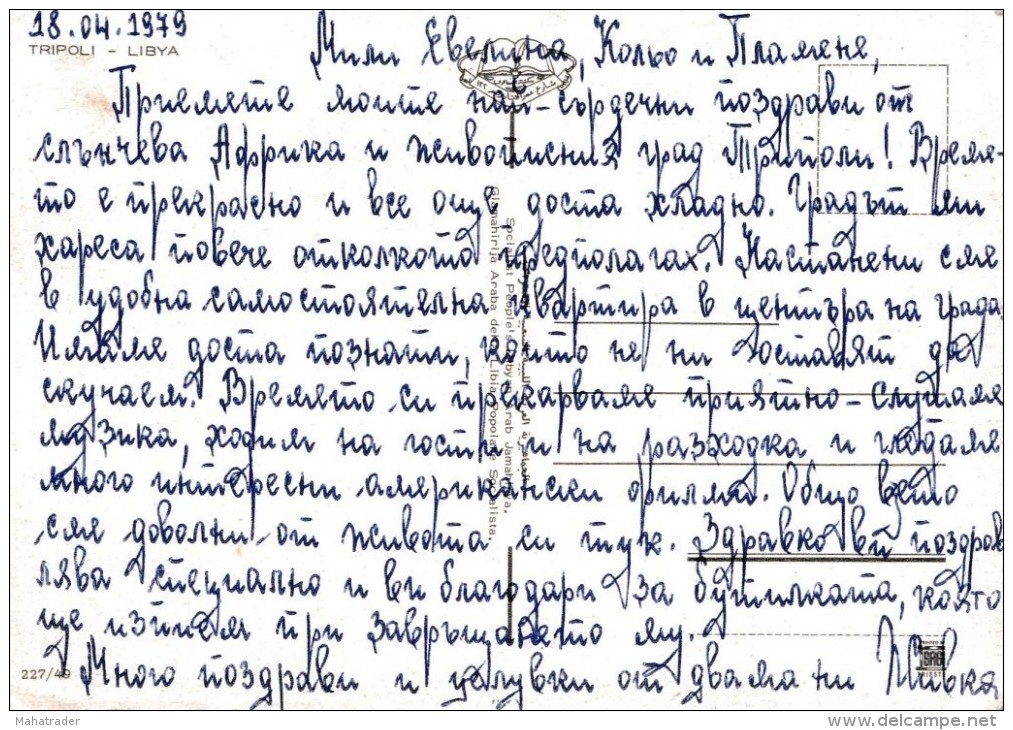 18.04.1979
TRIPOLI - LIBYA
Мили Евелина, Кольо и Пламене,
Приемете моите най-сърдечни поздрави от
слънчева Африка и живописния град Триполи! Време-
то е прекрасно и все още доста хладно. Градът ми
хареса повече отколкото предполагах. Настанени сме
в удобна самостоятелна квартира в центъра на града.
Имаме доста познати, които не ни оставят да
скучаем. Времето си прекарваме приятно - слушаме
музика, ходим на гости и на разходка и гледаме
много интересни американски филми. Общо взето
сме доволни от живота си тук. Здравко ви поздрав
лява специално и ви благодари за бутилката, която
ще изпием при завръщането му.
Много поздрави и целувки от двама ни Живка
Socialist People's Libyan Arab Jamahiriya.
Giamahirija Araba della Libia Popolare Socialista.
227/49
Mahatrader
delcampe.net